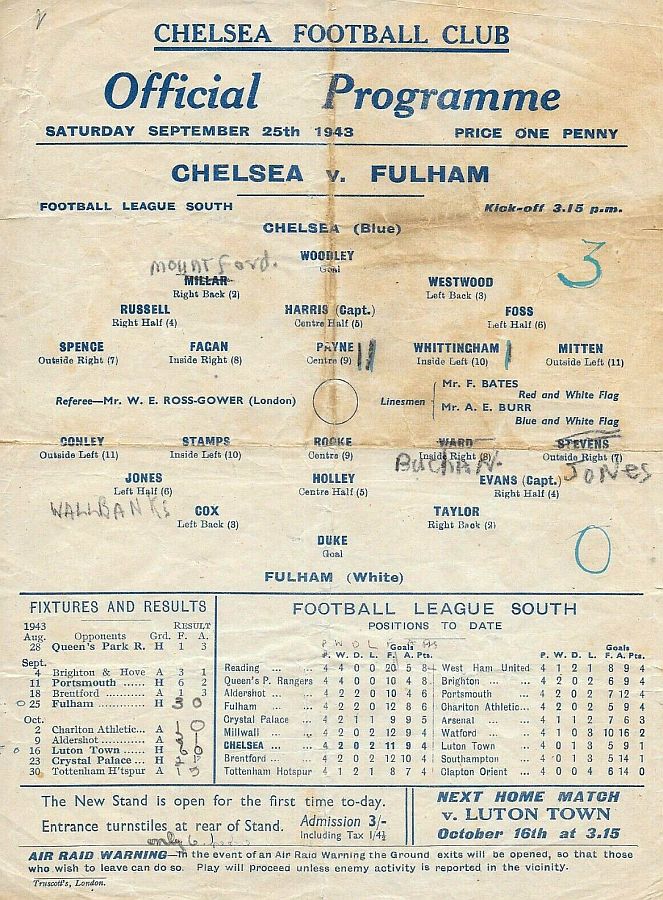 CHELSEA FOOTBALL CLUB
Official Programme
SATURDAY SEPTEMBER 25th 1943 PRICE ONE PENNY
CHELSEA v. FULHAM
FOOTBALL LEAGUE SOUTH Kick-off 3.15 p.m.
CHELSEA (Blue)
WOODLEY
Goal
MOUNTFORD. 3
MILLAR WESTWOOD
Right Back (2) Left Back (3)
RUSSELL HARRIS (Capt.) FOSS
Right Half (4) Centre Half (5) Left Half (6)
SPENCE FAGAN PAYNE WHITTINGHAM MITTEN
Outside Right (7) Inside Right (8) Centre (9) Inside Left (10) Outside Left (11)
Referee—Mr. W. E. ROSS-GOWER (London) Linesmen
Mr. F. BATES
Red and White Flag
Mr. A. E. BURR
Blue and White Flag
CONLEY STAMPS ROOKE WARD STEVENS
Outside Left (11) Inside Left (10) Centre (9) Inside Right (8) Outside Right (7)
BUCHAN. JONES
JONES HOLLEY EVANS (Capt.)
Left Half (6) Centre Half (5) Right Half (4)
WALLBANKS COX TAYLOR
Left Back (3) Right Back (2)
DUKE
Goal 0
FULHAM (White)
FIXTURES AND RESULTS
1943 RESULT
Aug. Opponents Grd. F. A.
28 Queen's Park R. H 1 3
Sept.
4 Brighton & Hove A 3 1
11 Portsmouth ... H 6 2
18 Brentford ... A 1 3
25 Fulham ... H 3 0
Oct.
2 Charlton Athletic... A 1 0
9 Aldershot ... A
16 Luton Town ... H 6 0
23 Crystal Palace ... H
30 Tottenham H'tspur A 1
FOOTBALL LEAGUE SOUTH
POSITIONS TO DATE
P W D L F A Pts
Goals
P. W. D. L. F. A. Pts.
Reading ... 4 4 0 0 20 5 8
Queen's P. Rangers 4 4 0 0 10 4 8
Aldershot ... 4 2 2 0 10 4 6
Fulham ... 4 2 2 0 12 8 6
Crystal Palace ... 4 2 1 1 9 9 5
Millwall ... 4 2 0 2 12 9 4
CHELSEA ... 4 2 0 2 11 9 4
Brentford ... 4 2 0 2 12 10 4
Tottenham Hotspur 4 1 2 1 8 7 4
Goals
P. W. D. L. F. A. Pts.
West Ham United 4 1 2 1 8 9 4
Brighton ... 4 2 0 2 6 9 4
Portsmouth ... 4 2 0 2 7 12 4
Charlton Athletic... 4 2 0 2 6 9 4
Arsenal ... 4 1 1 2 7 6 3
Watford ... 4 1 0 3 10 16 2
Luton Town ... 4 0 1 3 5 9 1
Southampton ... 4 0 1 3 5 14 1
Clapton Orient ... 4 0 0 4 6 14 0
The New Stand is open for the first time to-day.
Entrance turnstiles at rear of Stand. Admission 3/-
Including Tax 1/4½
only 6
NEXT HOME MATCH
v. LUTON TOWN
October 16th at 3.15
AIR RAID WARNING—In the event of an Air Raid Warning the Ground exits will be opened, so that those
who wish to leave can do so. Play will proceed unless enemy activity is reported in the vicinity.
Truscott's, London.